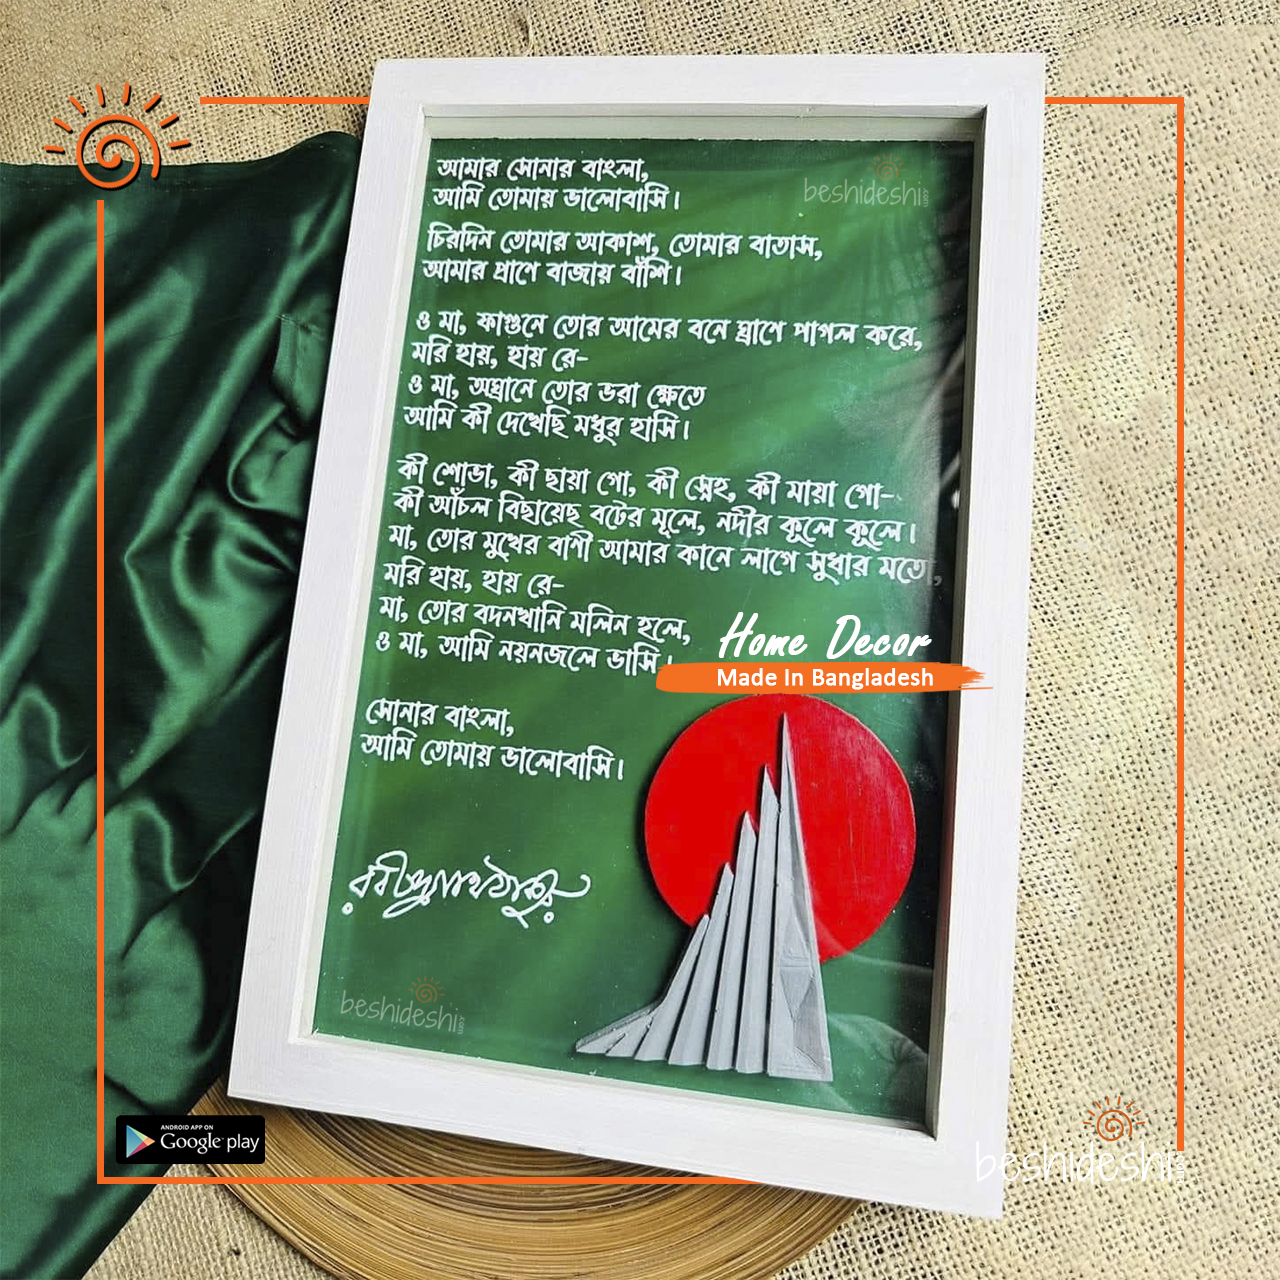 আমার সোনার বাংলা,
আমি তোমায় ভালোবাসি।
চিরদিন তোমার আকাশ, তোমার বাতাস,
আমার প্রাণে বাজায় বাঁশি।
ও মা, ফাগুনে তোর আমের বনে ঘ্রাণে পাগল করে,
মরি হায়, হায় রে-
ও মা, অঘ্রানে তোর ভরা ক্ষেতে
আমি কী দেখেছি মধুর হাসি।
কী শোভা, কী ছায়া গো, কী স্নেহ, কী মায়া গো-
কী আঁচল বিছায়েছ বটের মূলে, নদীর কূলে কূলে।
মা, তোর মুখের বাণী আমার কানে লাগে সুধার মতো,
মরি হায়, হায় রে-
মা, তোর বদনখানি মলিন হলে,
ও মা, আমি নয়নজলে ভাসি।
সোনার বাংলা,
আমি তোমায় ভালোবাসি।
রবীন্দ্রনাথ ঠাকুর
Home Decor
Made In Bangladesh
beshideshi.com
beshideshi.com
ANDROID APP ON
Google play
beshideshi.com